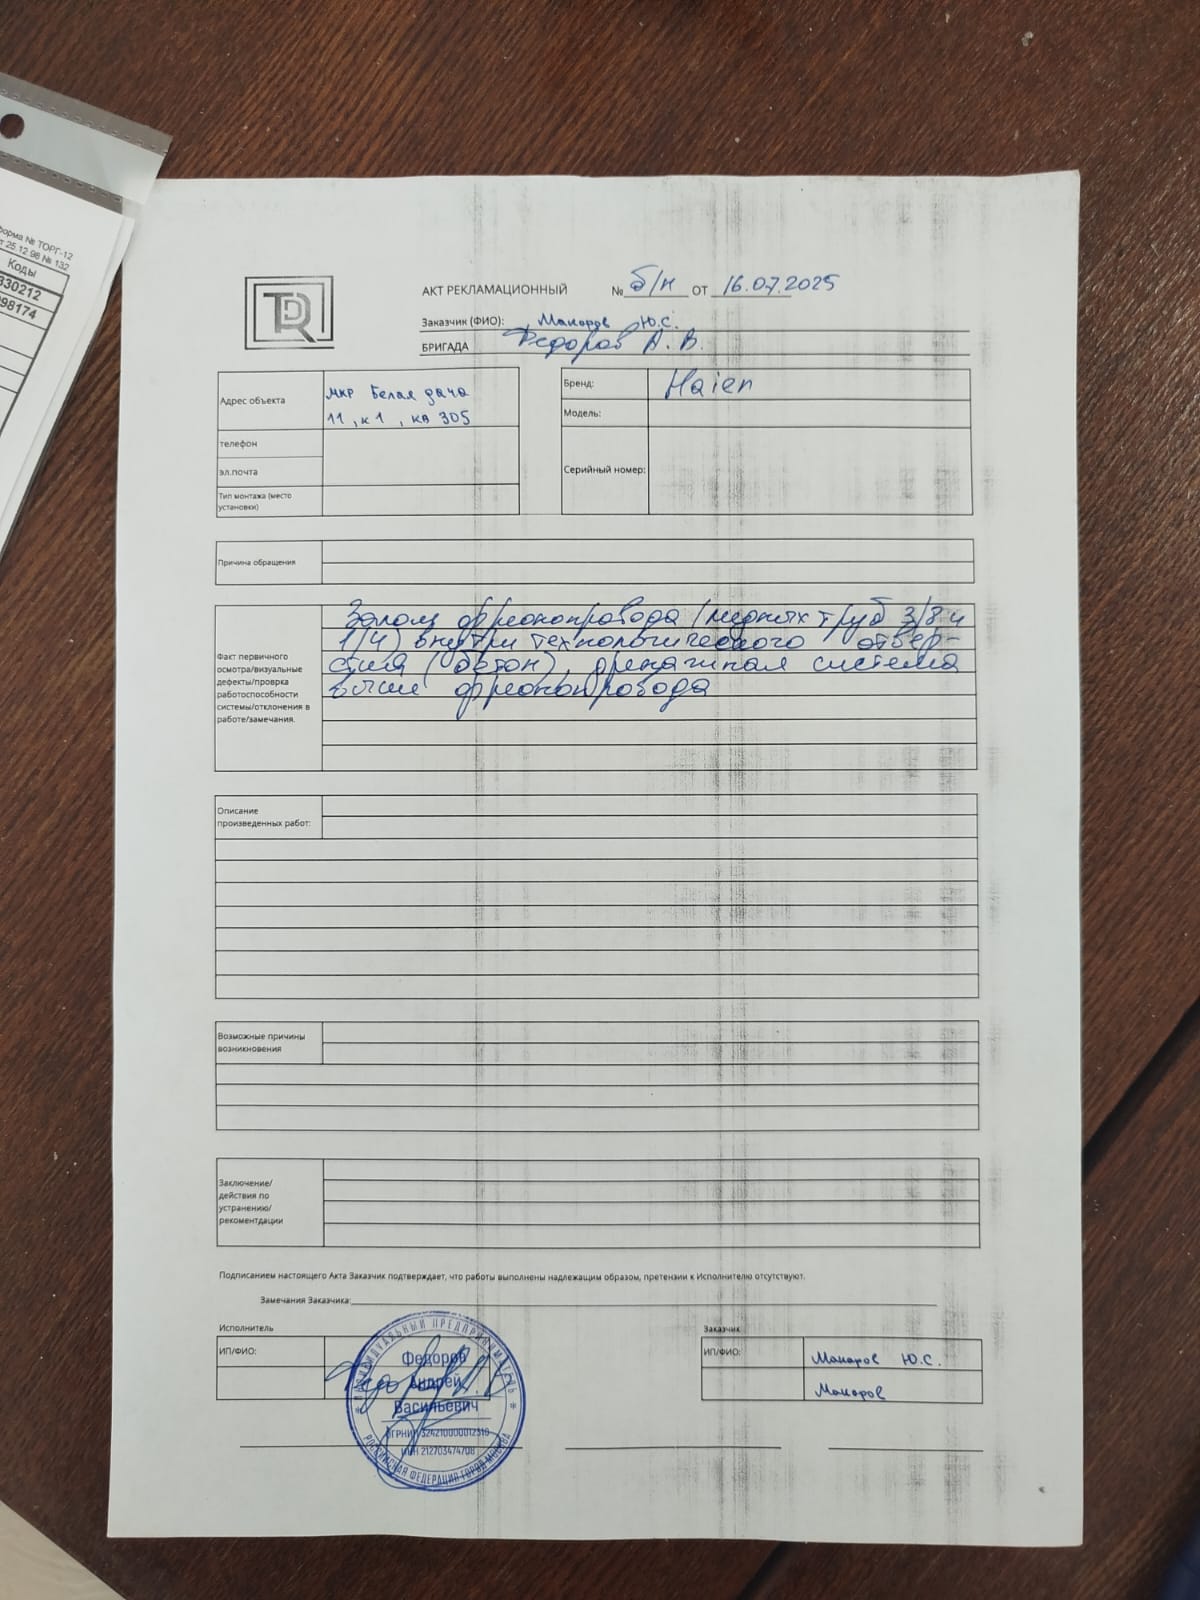 форма № ТОРГ-12
т 25.12.98 № 132
Коды
330212
98174
TDR
АКТ РЕКЛАМАЦИОННЫЙ № б/н от 16.07.2025
Заказчик (ФИО): Макаров Ю.С.
БРИГАДА Федоров А. В.
Адрес объекта
мкр Белая дача
11, к1, кв 305
телефон
эл.почта
Тип монтажа (место
установки)
Бренд: Haier
Модель:
Серийный номер:
Причина обращения
Факт первичного
осмотра/визуальные
дефекты/проврка
работоспособности
системы/отклонения в
работе/замечания.
Залом фреонопровода (медных труб 3/8 и
1/4) внутри технологического отвер-
стия (бетон), дренажная система
выше фреонопровода
Описание
произведенных работ:
Возможные причины
возникновения
Заключение/
действия по
устранению/
рекоментдации
Подписанием настоящего Акта Заказчик подтверждает, что работы выполнены надлежащим образом, претензии к Исполнителю отсутствуют.
Замечания Заказчика:
Исполнитель
ИП/ФИО:
ИНДИВИДУАЛЬНЫЙ ПРЕДПРИНИМАТЕЛЬ
Федоров
Андрей
Васильевич
ОГРНИП 324210000012310
ИНН 212703474708
РОССИЙСКАЯ ФЕДЕРАЦИЯ ГОРОД МОСКВА
Заказчик
ИП/ФИО: Макаров Ю.С.
Макаров